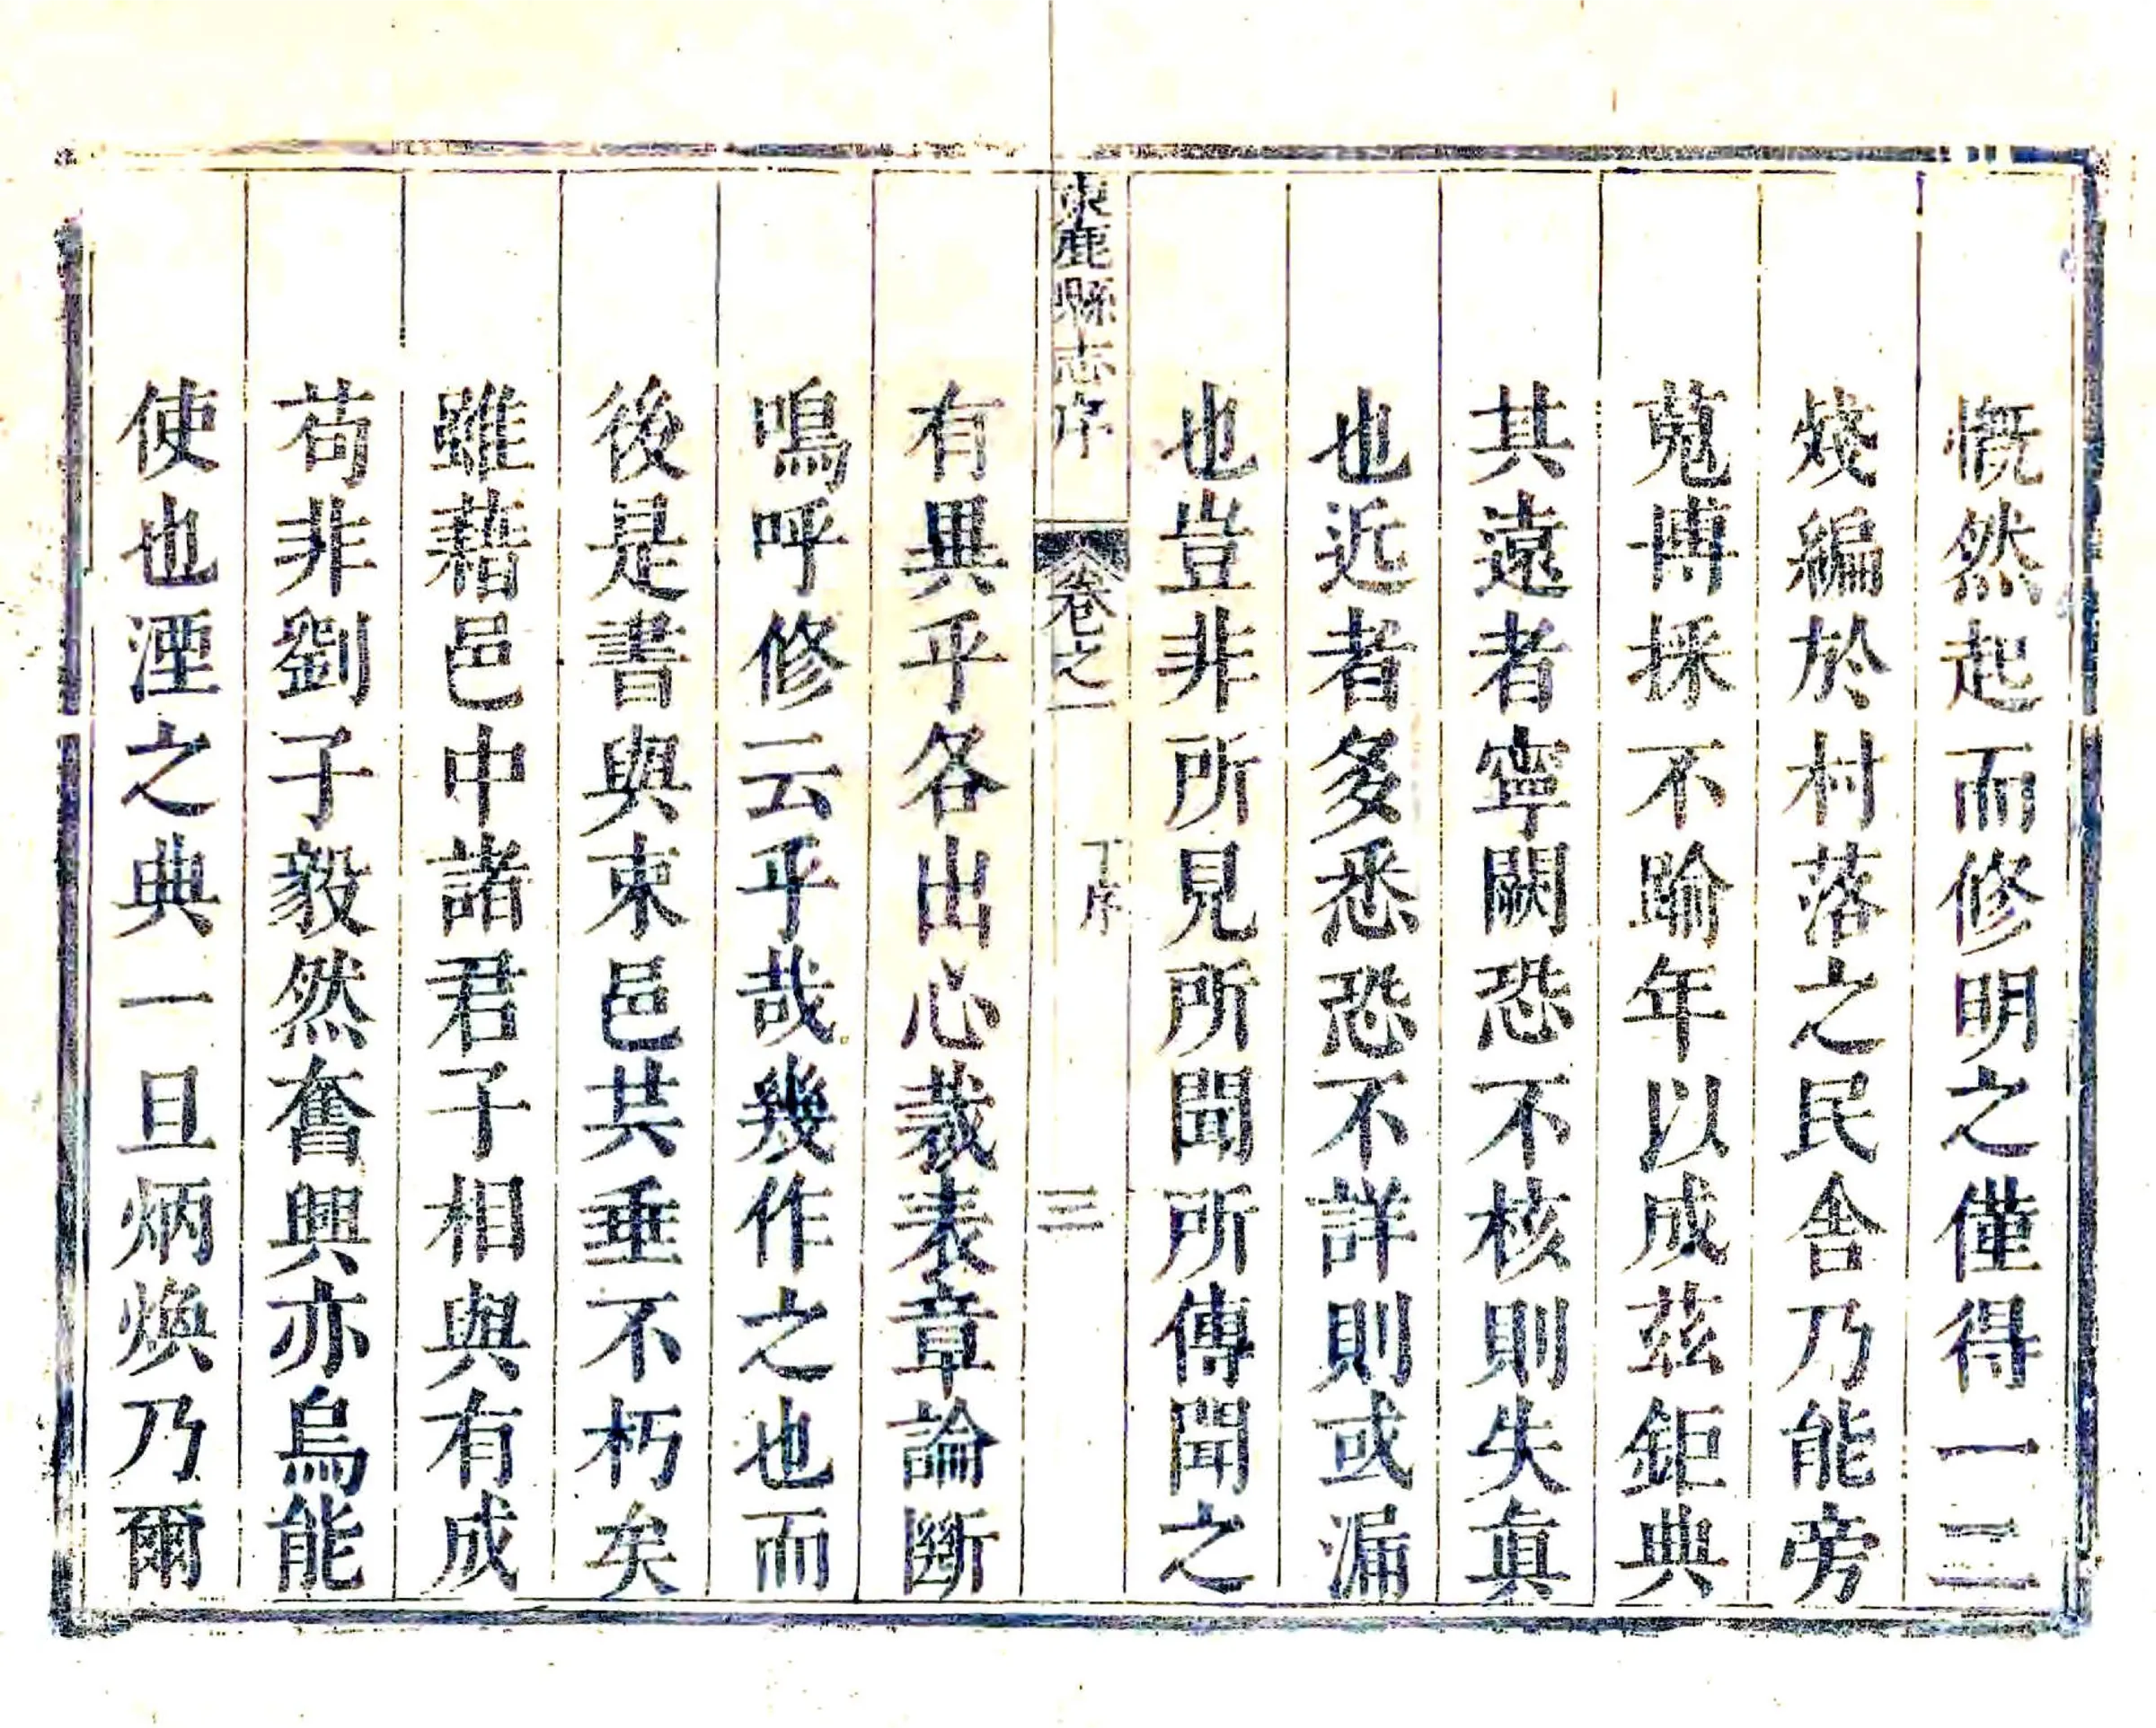 慨然起而修明之僅得一二
殘編於村落之民舍乃能旁
蒐博採不踰年以成茲鉅典
其遠者寧闕恐不核則失真
也近者多悉恐不詳則或漏
也豈非所見所聞所傳聞之
束鹿縣志序
卷之一
丁序
三
有異乎各出心裁表章論斷
鳴呼修云乎哉幾作之也而
後是書與束邑共垂不朽矣
雖藉邑中諸君子相與有成
苟非劉子毅然奮興亦烏能
使也湮之典一旦炳煥乃爾